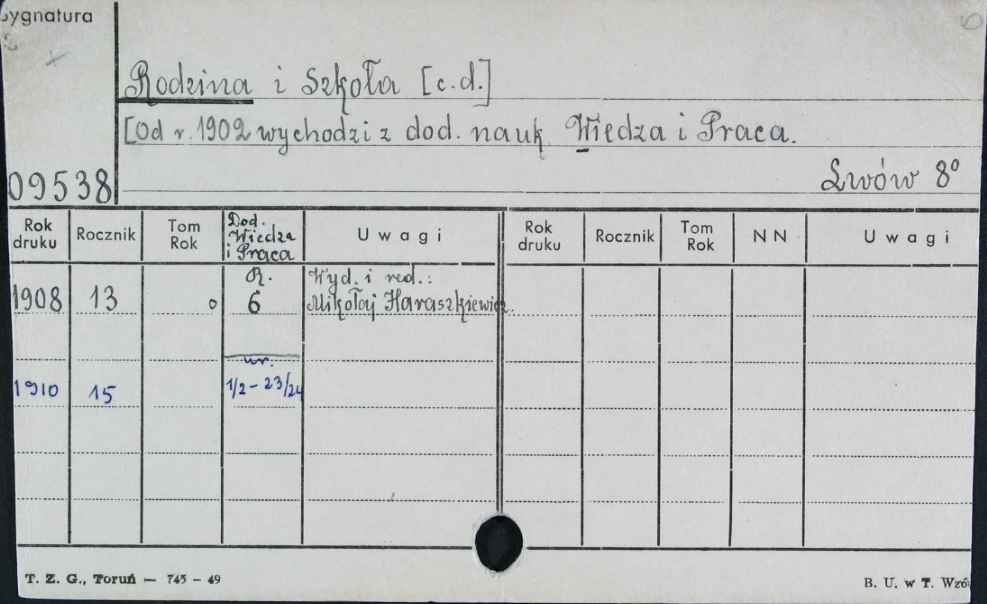 Sygnatura
Rodzina i Szkoła [c.d.]
[Od r. 1902 wychodzi z dod. nauk. Wiedza i Praca.
09538
Lwów 8°
Rok druku Rocznik Tom Rok Dod. Wiedza i Praca Uwagi Rok druku Rocznik Tom Rok NN Uwagi
R. Wyd. i red.:
1908 13 6 Mikołaj Haraszkiewicz.
nr.
1910 15 1/2 - 23/24
T. Z. G., Toruń — 745 - 49 B. U. w T. Wzó